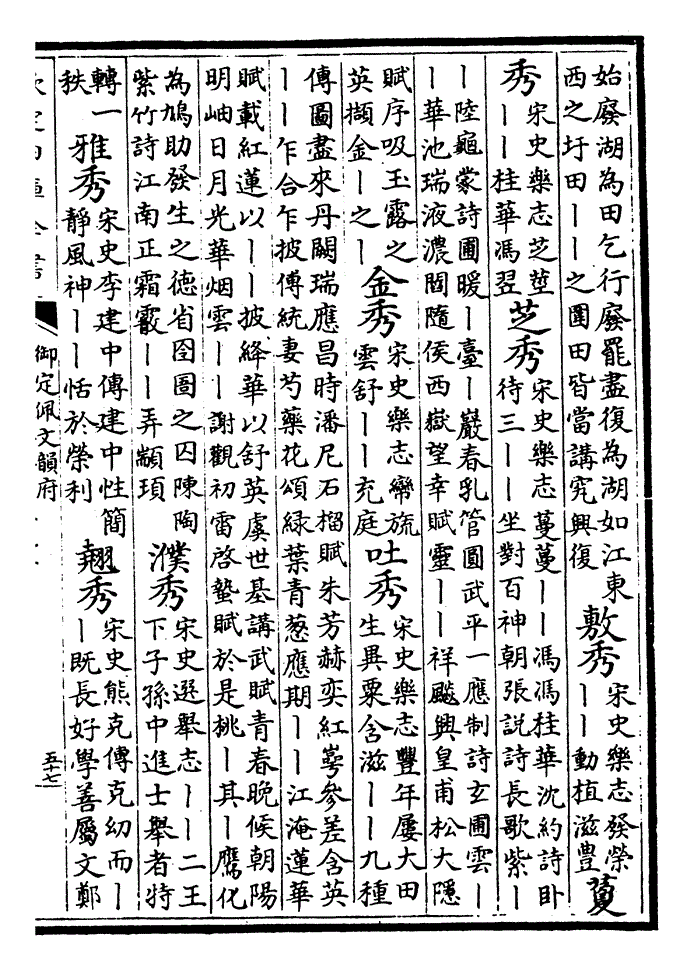 始廢湖為田乞行廢罷盡復為湖如江東
西之圩田丨丨之圍田皆當講究興復
敷秀
宋史樂志發榮
丨丨動植滋豐
蔓
秀
宋史樂志芝莖
丨丨桂華馮翌
芝秀
宋史樂志蔓蔓丨丨馮馮桂華沈約詩卧
待三丨丨坐對百神朝張説詩長歌紫丨
丨陸龜蒙詩圃暖丨臺丨巖春乳管圓武平一應制詩玄圃雲丨
丨華池瑞液濃閻隨侯西嶽望幸賦靈丨丨祥飈興皇甫松大隱
賦序吸玉露之
英擷金丨之丨
金秀
宋史樂志幣旒
雲舒丨丨充庭
吐秀
宋史樂志豐年屢大田
生異粟含滋丨丨九種
傅圖盡來丹闕瑞應昌時潘尼石榴賦朱芳赫奕紅蕚參差含英
丨丨乍合乍披傅統妻芍藥花頌緑葉青葱應期丨丨江淹蓮華
賦載紅蓮以丨丨披絳華以舒英虞世基講武賦青春晚候朝陽
明岫日月光華烟雲丨丨謝觀初雷啓蟄賦於是桃丨其丨鷹化
為鳩助發生之德省囹圄之囚陳陶
紫竹詩江南正霜霰丨丨弄顓頊
濮秀
宋史選舉志丨丨二王
下子孫中進士舉者特
轉一
秩
雅秀
宋史李建中傳建中性簡
靜風神丨丨恬於榮利
翹秀
宋史熊克傳克幼而丨
丨既長好學善屬文鄭
御定佩文韻府
五十七